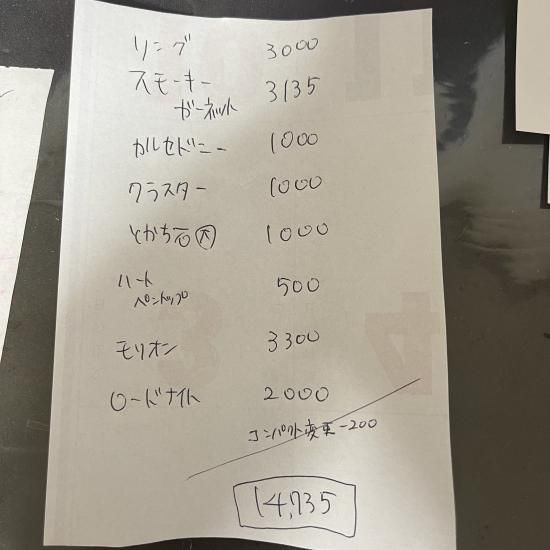 リング 3000
スモーキー
ガーネット 3135
カルセドニー 1000
クラスター 1000
とかち石大 1000
ハート
ペントップ 500
モリオン 3300
ロードナイト 2000
コンパクト変更 -200
14,735